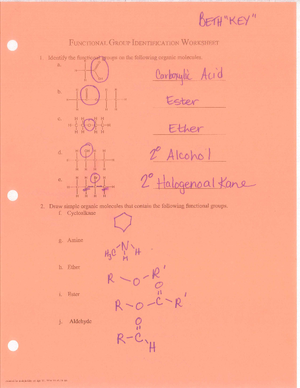 BETH "KEY"
FUNCTIONAL GROUP IDENTIFICATION WORKSHEET
1. Identify the functional groups on the following organic molecules.
a.
Carboxylic Acid
b.
Ester
c.
Ether
d.
2° Alcohol
e.
2° Halogenoalkane
2. Draw simple organic molecules that contain the following functional groups.
f. Cycloalkane
g. Amine
H₃C N H
H
h. Ether
R O R'
i. Ester
O
R O C R'
j. Aldehyde
O
R C H